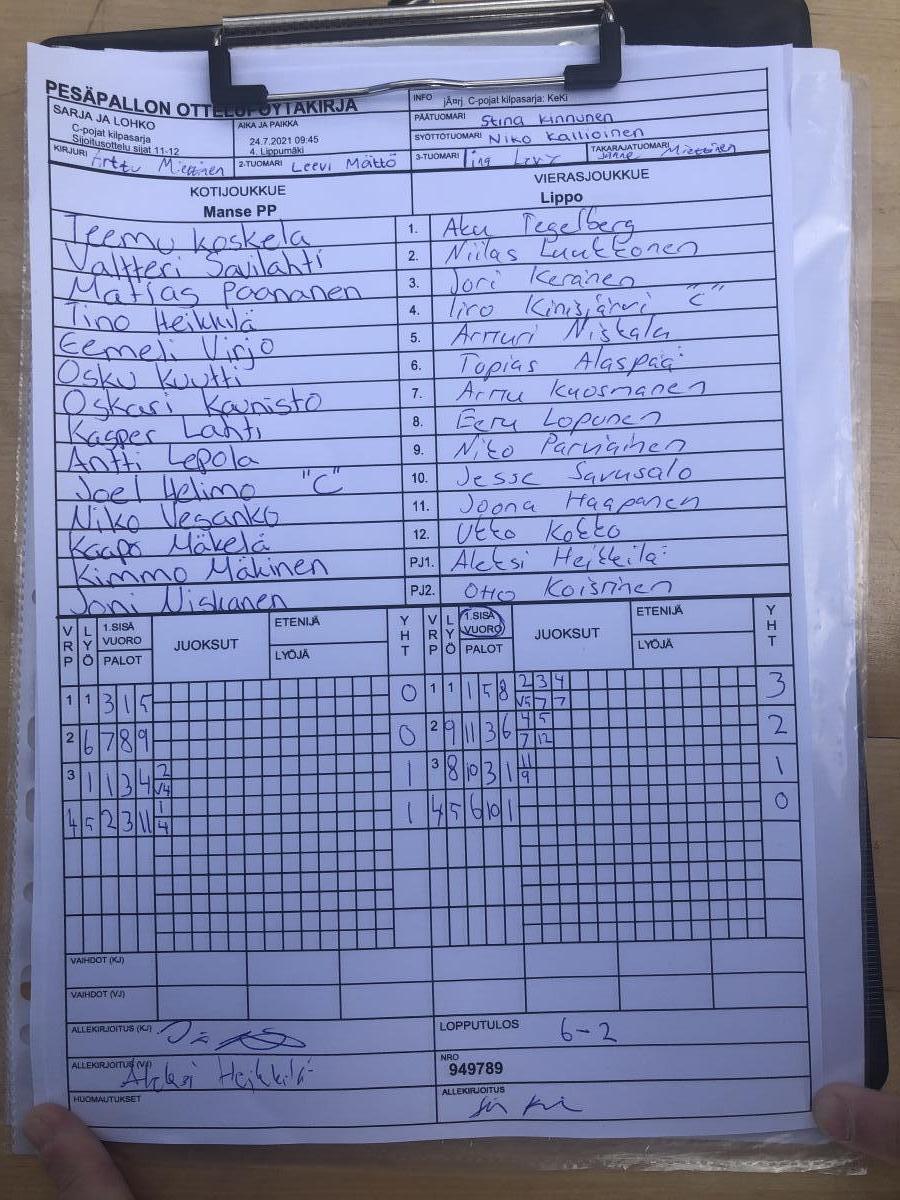 PESÄPALLON OTTELUPÖYTÄKIRJA
SARJA JA LOHKO
C-pojat kilpasarja
Sijoitusottelu sijat 11-12
AIKA JA PAIKKA
24.7.2021 09:45
4. Lippumäki
INFO jÃ¤rj. C-pojat kilpasarja: KeKi
PÄÄTUOMARI Stina Kinnunen
SYÖTTÖTUOMARI Niko Kallioinen
KIRJURI Arttu Miettinen
2-TUOMARI Leevi Mättö
3-TUOMARI
TAKARAJATUOMARI Miettinen
KOTIJOUKKUE
Manse PP
VIERASJOUKKUE
Lippo
Teemu Koskela 1. Aku Tegelberg
Valtteri Savilahti 2. Niilas Luukkonen
Matias Paananen 3. Jori Keränen
Tino Heikkilä 4. Iiro Kinisjärvi "C"
Eemeli Virjo 5. Artturi Niskala
Osku Kuutti 6. Topias Alaspää
Oskari Kaunisto 7. Arttu Kuosmanen
Kasper Lahti 8. Eeru Loponen
Antti Lepola 9. Niko Parviainen
Joel Helimo "C" 10. Jesse Savusalo
Niko Vesanko 11. Joona Haapanen
Kaapo Mäkelä 12. Utto Kokko
Kimmo Mäkinen PJ1. Aleksi Heikkilä
Joni Niskanen PJ2. Otto Koistinen
VRP LYÖ 1.SISÄ VUORO PALOT JUOKSUT ETENIJÄ LYÖJÄ YHT VRP LYÖ 1.SISÄ VUORO PALOT JUOKSUT ETENIJÄ LYÖJÄ YHT
1 1 3 1 5 0 1 1 1 5 8 2 3 4 3
V5 7 7
2 6 7 8 9 0 2 9 11 3 6 4 5 2
7 12
3 1 1 3 4 2 1 3 8 10 3 1 11 1
V4 9
4 5 2 3 11 1 1 4 5 6 10 1 0
4
VAIHDOT (KJ)
VAIHDOT (VJ)
ALLEKIRJOITUS (KJ)
LOPPUTULOS 6-2
ALLEKIRJOITUS (VJ) Aleksi Heikkilä
NRO
949789
HUOMAUTUKSET
ALLEKIRJOITUS